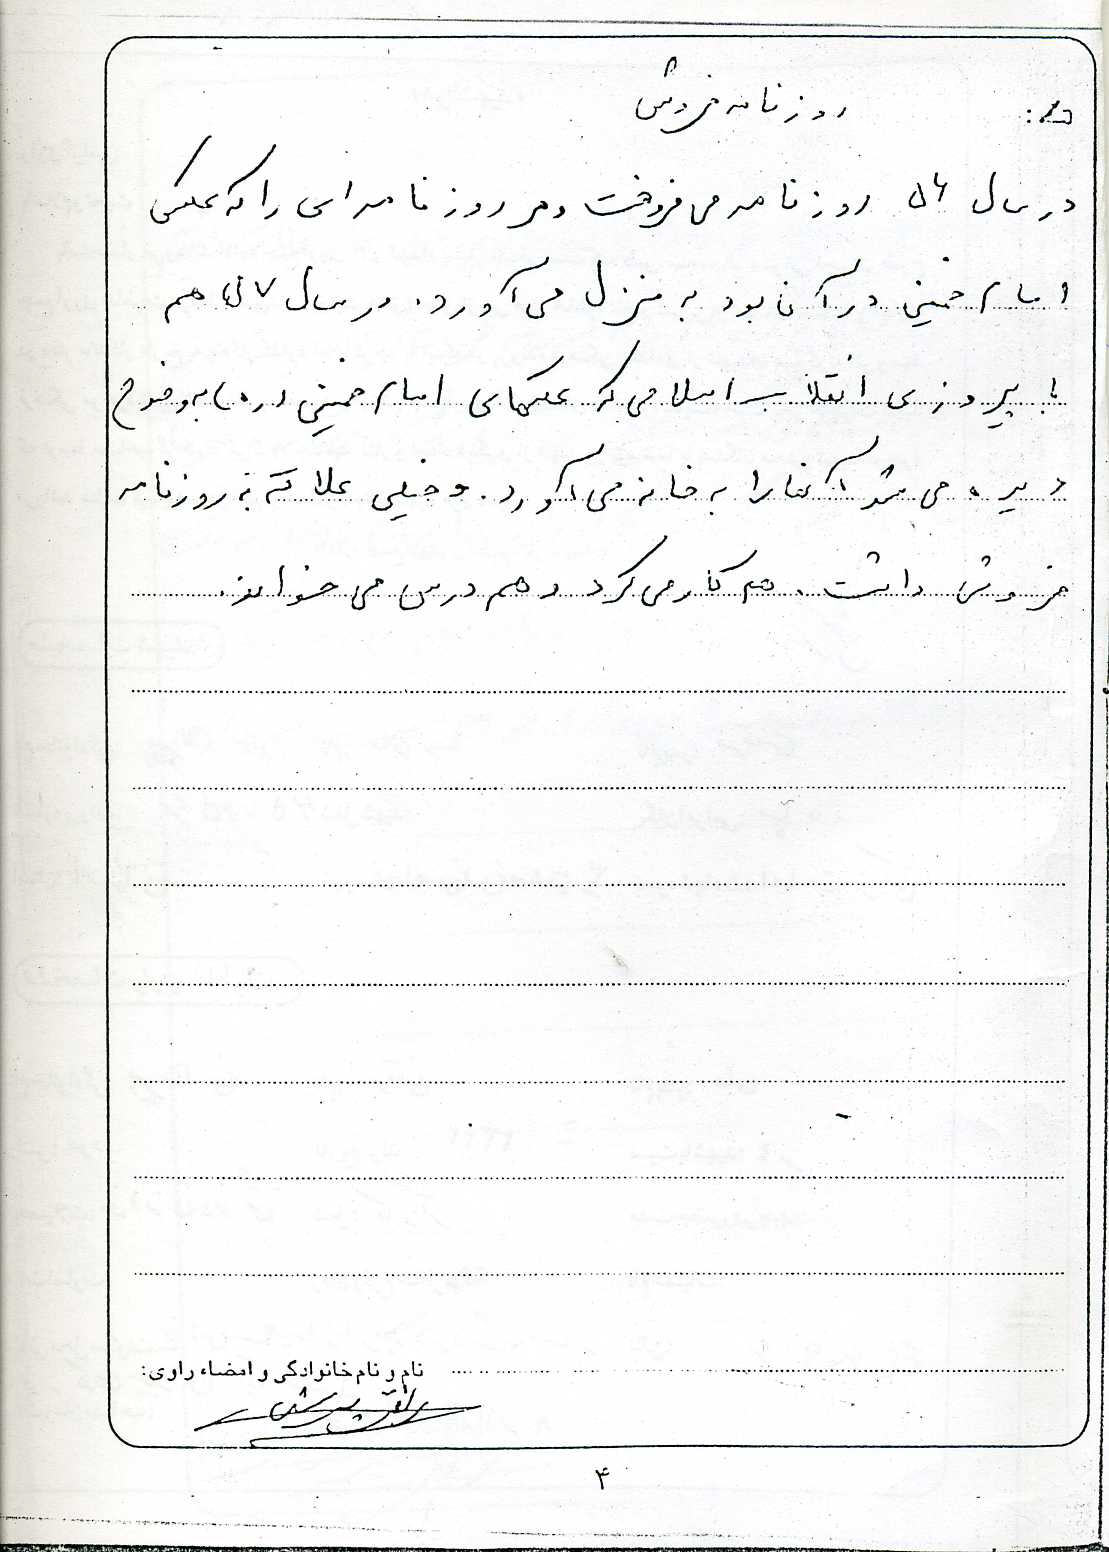 روزنامه فروش
در سال ۵۶ روزنامه می فروخت و هر روزنامه ای را که عکسی
امام خمینی در آن بود به منزل می آورد. در سال ۵۷ هم
با پیروزی انقلاب اسلامی که عکسهای امام خمینی (ره) به وضوح
دیده می شد آنها را به خانه می آورد. و خیلی علاقه به روزنامه
فروشی داشت. هم کار می کرد و هم درس می خواند.
نام و نام خانوادگی و امضاء راوی:
۴